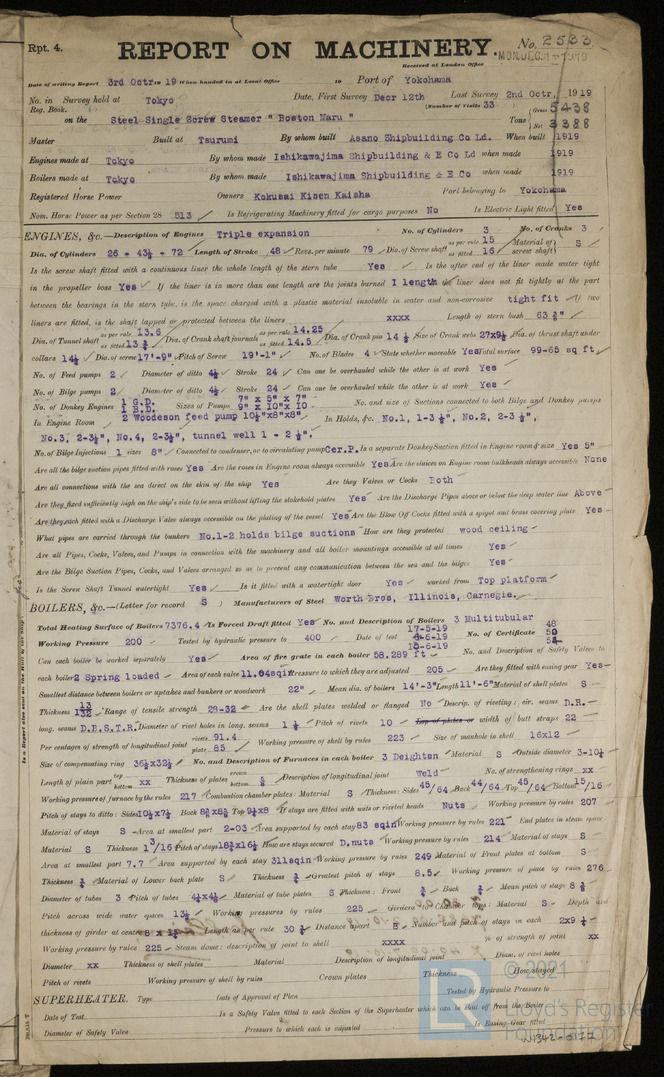 Rpt. 4.
REPORT ON MACHINERY.
No. 2533
Received at London Office
MON. DEC. 1 - 1919
Date of writing Report 3rd Octr. 19 When handed in at Local Office 19 Port of Yokohama
No. in Survey held at Tokyo Date, First Survey Decr 12th Last Survey 2nd Octr, 1919
Reg. Book. (Number of Visits 33
on the Steel Single Screw Steamer "Boston Maru" Tons Gross 5438 Net 3388
Master Built at Tsurumi By whom built Asano Shipbuilding Co Ld. When built 1919
Engines made at Tokyo By whom made Ishikawajima Shipbuilding & E Co Ld when made 1919
Boilers made at Tokyo By whom made Ishikawajima Shipbuilding & E Co when made 1919
Registered Horse Power Owners Kokusai Kisen Kaisha Port belonging to Yokohama
Nom. Horse Power as per Section 28 513 Is Refrigerating Machinery fitted for cargo purposes No Is Electric Light fitted Yes
ENGINES, &c.—Description of Engines Triple expansion No. of Cylinders 3 No. of Cranks 3
Dia. of Cylinders 26 - 43½ - 72 Length of Stroke 48 Revs. per minute 79 Dia. of Screw shaft as per rule 15 as fitted 16 Material of screw shaft S
Is the screw shaft fitted with a continuous liner the whole length of the stern tube Yes Is the after end of the liner made water tight
in the propeller boss Yes If the liner is in more than one length are the joints burned 1 length the liner does not fit tightly at the part
between the bearings in the stern tube, is the space charged with a plastic material insoluble in water and non-corrosive tight fit If two
liners are fitted, is the shaft lapped or protected between the liners xxxx Length of stern bush
Dia. of Tunnel shaft as per rule 13.6 as fitted Dia. of Crank shaft journals as per rule 14.25 as fitted 14.5 Dia. of Crank pin 14½ Size of Crank webs Dia. of thrust shaft under
collars 14½ Dia. of screw 17'-9" Pitch of Screw 19'-1" No. of Blades 4 State whether moveable Yes Total surface 99-65 sq ft
No. of Feed pumps 2 Diameter of ditto 4½ Stroke 24 Can one be overhauled while the other is at work Yes
No. of Bilge pumps 2 Diameter of ditto 4½ Stroke 24 Can one be overhauled while the other is at work Yes
No. of Donkey Engines 1 G.D. 1 B.D. Sizes of Pumps 7" x 5" x 7" 9" x 10" x 10 No. and size of Suctions connected to both Bilge and Donkey pumps
In Engine Room 2 Woodeson feed pump In Holds, &c. No.1, 1-3½", No.2, 2-3½",
No.3, 2-3½", No.4, 2-3½", tunnel well 1 - 2½",
No. of Bilge Injections 1 sizes 8" Connected to condenser, or to circulating pump Cer.P. Is a separate Donkey Suction fitted in Engine room & size Yes 5"
Are all the bilge suction pipes fitted with roses Yes Are the roses in Engine room always accessible Yes Are the sluices on Engine room bulkheads always accessible None
Are all connections with the sea direct on the skin of the ship Yes Are they Valves or Cocks Both
Are they fixed sufficiently high on the ship's side to be seen without lifting the stokehold plates Yes Are the Discharge Pipes above or below the deep water line Above
Are they each fitted with a Discharge Valve always accessible on the plating of the vessel Yes Are the Blow Off Cocks fitted with a spigot and brass covering plate Yes
What pipes are carried through the bunkers No.1-2 holds bilge suctions How are they protected wood ceiling
Are all Pipes, Cocks, Valves, and Pumps in connection with the machinery and all boiler mountings accessible at all times Yes
Are the Bilge Suction Pipes, Cocks, and Valves arranged so as to prevent any communication between the sea and the bilges Yes
Is the Screw Shaft Tunnel watertight Yes Is it fitted with a watertight door Yes worked from Top platform
BOILERS, &c.—(Letter for record S ) Manufacturers of Steel Worth Bros, Illinois, Carnegie.
Total Heating Surface of Boilers 7376.4 Is Forced Draft fitted Yes No. and Description of Boilers 3 Multitubular
Working Pressure 200 Tested by hydraulic pressure to 400 Date of test 17-5-19 No. of Certificate 48 50
Can each boiler be worked separately Yes Area of fire grate in each boiler 58.289 ft No. and Description of Safety Valves to
each boiler 2 Spring loaded Area of each valve 11.04sqin Pressure to which they are adjusted 205 Are they fitted with easing gear Yes
Smallest distance between boilers or uptakes and bunkers or woodwork 22" Mean dia. of boilers 14'-3" Length 11'-6" Material of shell plates S
Thickness Range of tensile strength 28-32 Are the shell plates welded or flanged No Descrip. of riveting: cir. seams D.R.
long. seams D.B.S.T.R. Diameter of rivet holes in long. seams Pitch of rivets 10 Lap of plates or width of butt straps 22
Per centages of strength of longitudinal joint rivets 91.4 plate 85 Working pressure of shell by rules 223 Size of manhole in shell 16x12
Size of compensating ring No. and Description of Furnaces in each boiler 3 Deighton Material S Outside diameter
Length of plain part top bottom xx Thickness of plates crown bottom Description of longitudinal joint Weld No. of strengthening rings xx
Working pressure of furnace by the rules 217 Combustion chamber plates: Material S Thickness: Sides 45/64 Back 44/64 Top 45/64 Bottom 15/16
Pitch of stays to ditto: Sides Back Top If stays are fitted with nuts or riveted heads Nuts Working pressure by rules 207
Material of stays S Area at smallest part 2-03 Area supported by each stay 83 sqin Working pressure by rules 221 End plates in steam space
Material S Thickness 1 3/16 Pitch of stays How are stays secured D.nuts Working pressure by rules 214 Material of stays S
Area at smallest part 7.7 Area supported by each stay 311sqin Working pressure by rules 249 Material of Front plates at bottom S
Thickness Material of Lower back plate S Thickness Greatest pitch of stays 8.5 Working pressure of plate by rules 276
Diameter of tubes 3 Pitch of tubes Material of tube plates S Thickness: Front Back Mean pitch of stays
Pitch across wide water spaces Working pressures by rules 225 Girders to Chamber tops: Material S Depth and
thickness of girder at centre Length as per rule Distance apart 8 Number and pitch of stays in each
Working pressure by rules 225 Steam dome: description of joint to shell xxxx % of strength of joint xx
Diameter xx Thickness of shell plates Material Description of longitudinal joint Diam. of rivet holes
Pitch of rivets Working pressure of shell by rules Crown plates Thickness How stayed
SUPERHEATER. Type Date of Approval of Plan Tested by Hydraulic Pressure to
Date of Test Is a Safety Valve fitted to each Section of the Superheater which can be shut off from the Boiler
Diameter of Safety Valve Pressure to which each is adjusted Is Easing Gear fitted
© 2021
Lloyd's Register
Foundation
W1342-0177